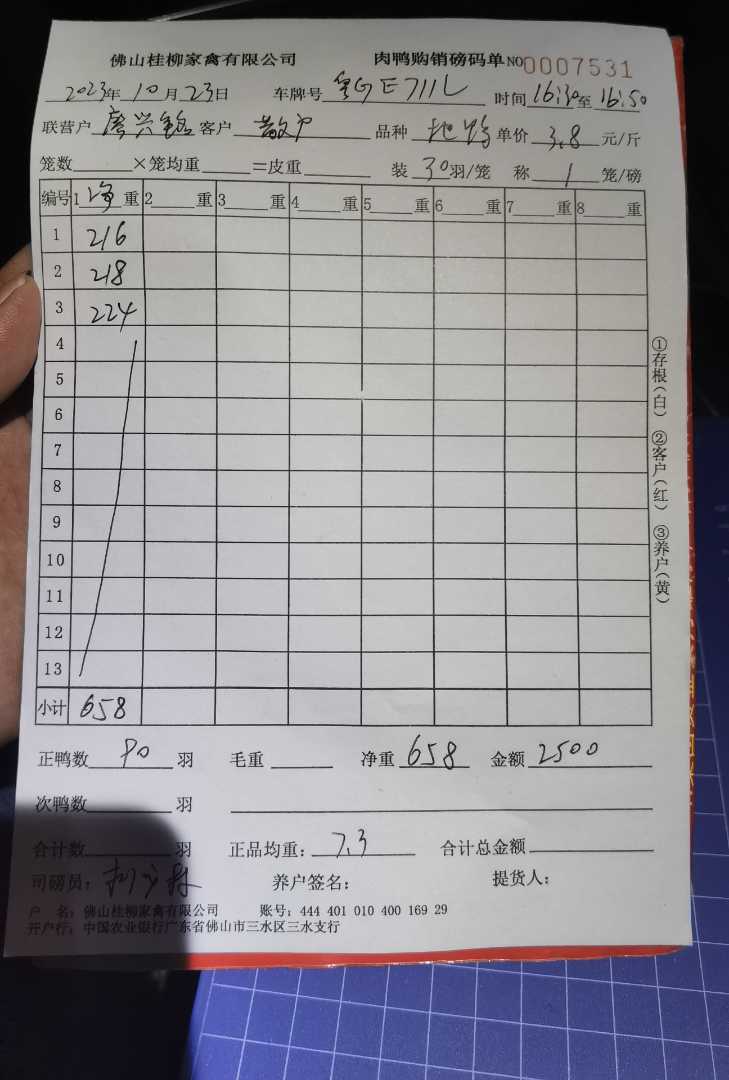 佛山桂柳家禽有限公司 肉鸭购销磅码单 NO 0007531
2023年10月23日 车牌号 粤GE711L 时间 16:30至16:50
联营户 唐兴铭 客户 散户 品种 地鸭 单价 3.8 元/斤
笼数 ×笼均重 =皮重 装 30 羽/笼 称 1 笼/磅
编号 1 净 重 2 重 3 重 4 重 5 重 6 重 7 重 8 重
1 216
2 218
3 224
4
5
6
7
8
9
10
11
12
13
小计 658
正鸭数 90 羽 毛重 净重 658 金额 2500
次鸭数 羽
合计数 羽 正品均重: 7.3 合计总金额
司磅员: 养户签名: 提货人:
户 名: 佛山桂柳家禽有限公司 账号: 444 401 010 400 169 29
开户行: 中国农业银行广东省佛山市三水区三水支行
①存根(白) ②客户(红) ③养户(黄)